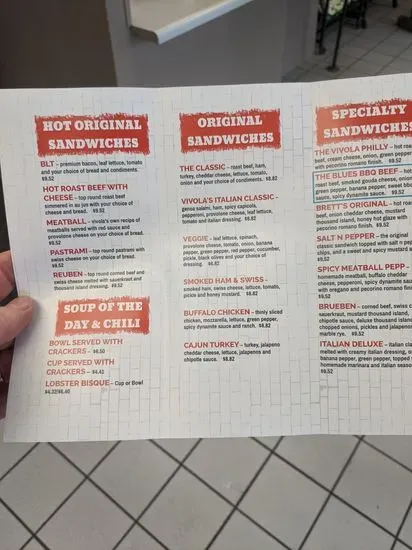 HOT ORIGINAL
SANDWICHES
BLT – premium bacon, leaf lettuce, tomato
and your choice of bread and condiments.
$9.52
HOT ROAST BEEF WITH
CHEESE – top round roast beef
simmered in au jus with your choice of
cheese and bread. $9.52
MEATBALL – vivola's own recipe of
meatballs served with red sauce and
provolone cheese on your choice of bread.
$9.52
PASTRAMI – top round pastrami with
swiss cheese on your choice of bread.
$9.52
REUBEN – top round corned beef and
swiss cheese melted with sauerkraut and
thousand island dressing. $9.52
SOUP OF THE
DAY & CHILI
BOWL SERVED WITH
CRACKERS – $6.50
CUP SERVED WITH
CRACKERS – $4.42
LOBSTER BISQUE – Cup or Bowl
$4.32/$6.40
ORIGINAL
SANDWICHES
THE CLASSIC – roast beef, ham,
turkey, cheddar cheese, lettuce, tomato,
onion and your choice of condiments. $8.82
VIVOLA'S ITALIAN CLASSIC -
genoa salami, ham, spicy capicola,
pepperoni, provolone cheese, leaf lettuce,
tomato and italian dressing. $8.82
VEGGIE – leaf lettuce, spinach,
provolone cheese, tomato, onion, banana
pepper, green pepper, red pepper, cucumber,
pickle, black olives and your choice of
dressing. $8.82
SMOKED HAM & SWISS –
smoked ham, swiss cheese, lettuce, tomato,
pickle and honey mustard. $8.82
BUFFALO CHICKEN – thinly sliced
chicken, mozzarella, lettuce, green pepper,
spicy dynamite sauce and ranch. $8.82
CAJUN TURKEY – turkey, jalapeno
cheddar cheese, lettuce, jalapenos and
chipotle sauce. $8.82
SPECIALTY
SANDWICHES
THE VIVOLA PHILLY – hot roa
beef, cream cheese, onion, green pepper
with pecorino romano finish. $9.52
THE BLUES BBQ BEEF – hot
roast beef, smoked gouda cheese, onion,
green pepper, banana pepper, sweet bbq
sauce, spicy dynamite sauce. $9.52
BRETT'S ORIGINAL – hot roast
beef, onion cheddar cheese, mustard,
thousand island, honey hot glaze with
pecorino romano finish. $9.52
SALT N PEPPER – the original
classic sandwich topped with salt n pe
chips, and a sweet and spicy mustard s
$9.52
SPICY MEATBALL PEPP –
homemade meatball, chipotle cheddar
cheese, pepperoni, spicy dynamite sauce
with oregano and pecorino romano finish
$9.52
BRUEBEN – corned beef, swiss c
sauerkraut, mustard thousand island,
chipotle sauce, deluxe thousand island
chopped onions, pickles and jalapenos
marble rye. $9.52
ITALIAN DELUXE – italian cla
melted with creamy italian dressing,
banana pepper, green pepper, topped
homemade marinara and italian season
$9.52